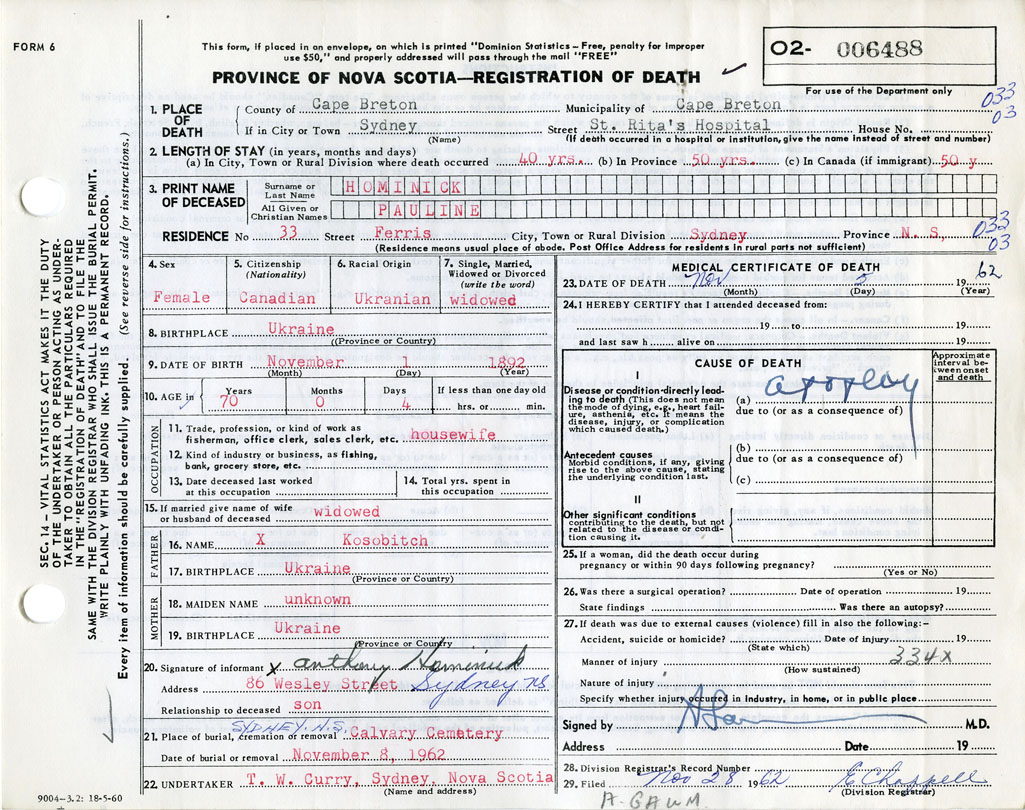 FORM 6
This form, if placed in an envelope, on which is printed "Dominion Statistics – Free, penalty for improper
use $50," and properly addressed will pass through the mail "FREE"
PROVINCE OF NOVA SCOTIA—REGISTRATION OF DEATH
02- 006488
For use of the Department only
033
03
1. PLACE OF DEATH
County of Cape Breton Municipality of Cape Breton
If in City or Town Sydney Street St. Rita's Hospital House No.
(Name) (If death occurred in a hospital or institution, give the name instead of street and number)
2. LENGTH OF STAY (in years, months and days)
(a) In City, Town or Rural Division where death occurred 40 yrs. (b) In Province 50 yrs. (c) In Canada (if immigrant) 50 y
3. PRINT NAME OF DECEASED
Surname or Last Name HOMINICK
All Given or Christian Names PAULINE
RESIDENCE No 33 Street Ferris City, Town or Rural Division Sydney Province N. S,
033
03
(Residence means usual place of abode. Post Office Address for residents in rural parts not sufficient)
4. Sex
Female
5. Citizenship (Nationality)
Canadian
6. Racial Origin
Ukranian
7. Single, Married, Widowed or Divorced (write the word)
widowed
8. BIRTHPLACE Ukraine
(Province or Country)
9. DATE OF BIRTH November 1 1892
(Month) (Day) (Year)
10. AGE in Years 70 Months 0 Days 4 If less than one day old hrs. or min.
OCCUPATION
11. Trade, profession, or kind of work as fisherman, office clerk, sales clerk, etc. housewife
12. Kind of industry or business, as fishing, bank, grocery store, etc.
13. Date deceased last worked at this occupation
14. Total yrs. spent in this occupation
15. If married give name of wife or husband of deceased widowed
FATHER
16. NAME X Kosobitch
17. BIRTHPLACE Ukraine
(Province or Country)
MOTHER
18. MAIDEN NAME unknown
19. BIRTHPLACE Ukraine
(Province or Country)
20. Signature of informant x Anthony Hominick
Address 86 Wesley Street Sydney NS
Relationship to deceased son
SYDNEY. N.S.
21. Place of burial, cremation or removal Calvary Cemetery
Date of burial or removal November 8, 1962
22. UNDERTAKER T. W. Curry, Sydney, Nova Scotia
(Name and address)
MEDICAL CERTIFICATE OF DEATH
23. DATE OF DEATH Nov 5 62
(Month) (Day) (Year)
24. I HEREBY CERTIFY that I attended deceased from:
19 to 19
and last saw h alive on 19
CAUSE OF DEATH
Approximate interval between onset and death
I
Disease or condition directly leading to death (This does not mean the mode of dying, e.g., heart failure, asthenia, etc. It means the disease, injury, or complication which caused death.)
(a) apoplexy
due to (or as a consequence of)
Antecedent causes
Morbid conditions, if any, giving rise to the above cause, stating the underlying condition last.
(b)
due to (or as a consequence of)
(c)
II
Other significant conditions
contributing to the death, but not related to the disease or condition causing it.
25. If a woman, did the death occur during
pregnancy or within 90 days following pregnancy?
(Yes or No)
26. Was there a surgical operation? Date of operation 19
State findings Was there an autopsy?
27. If death was due to external causes (violence) fill in also the following:-
Accident, suicide or homicide? Date of injury 19
(State which)
Manner of injury 334x
(How sustained)
Nature of injury
Specify whether injury occurred in industry, in home, or in public place
Signed by M.D.
Address Date 19
28. Division Registrar's Record Number
29. Filed Nov 28 1962 E Chappell
(Division Registrar)
A. GAUM.
SEC. 14 – VITAL STATISTICS ACT MAKES IT THE DUTY
OF THE UNDERTAKER OR PERSON ACTING AS UNDER-
TAKER TO OBTAIN ALL THE PARTICULARS REQUIRED
IN THE "REGISTRATION OF DEATH" AND TO FILE THE
SAME WITH THE DIVISION REGISTRAR WHO SHALL ISSUE THE BURIAL PERMIT.
WRITE PLAINLY WITH UNFADING INK. THIS IS A PERMANENT RECORD.
Every item of information should be carefully supplied. (See reverse side for instructions.)
9004–3.2: 18-5-60